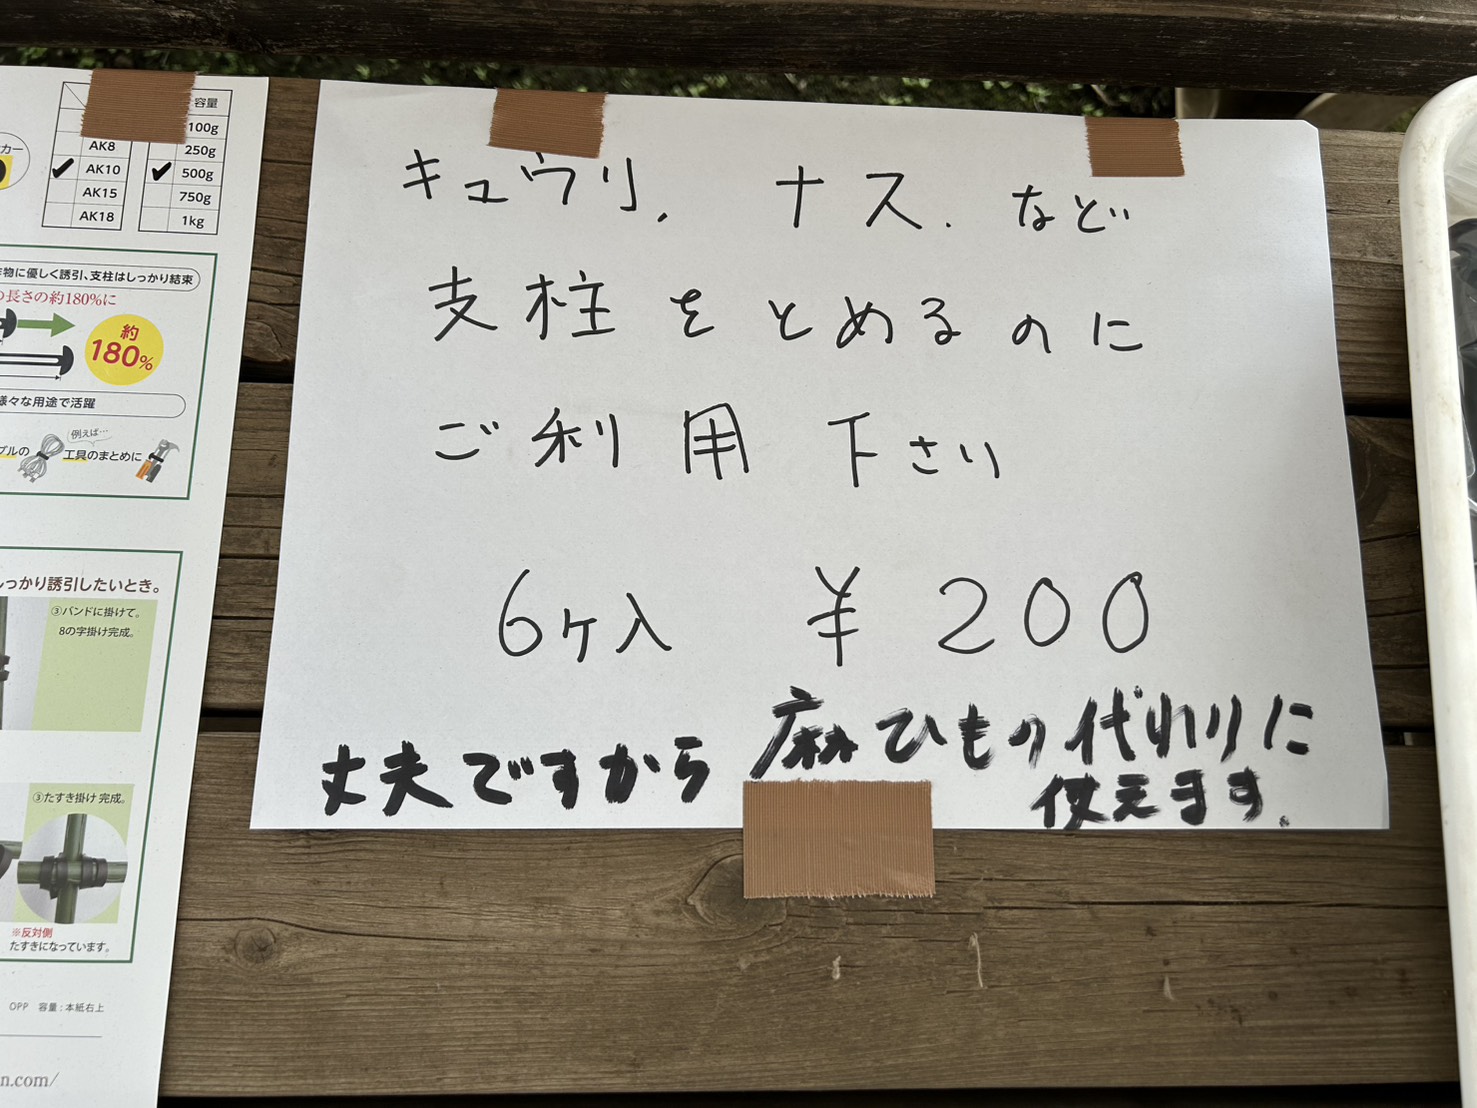 容量
100g
AK8 250g
✓ AK10 ✓ 500g
AK15 750g
AK18 1kg
カー
物に優しく誘引、支柱はしっかり結束
の長さの約180%に
約
180%
様々な用途で活躍
例えば…
ブルの
工具のまとめに
っかり誘引したいとき。
③バンドに掛けて。
8の字掛け完成。
③たすき掛け 完成。
※反対側
たすきになっています。
OPP 容量:本紙右上
n.com/
キュウリ、ナス、など
支柱をとめるのに
ご利用下さい
6ヶ入 ¥200
丈夫ですから 麻ひもの代わりに
使えます。